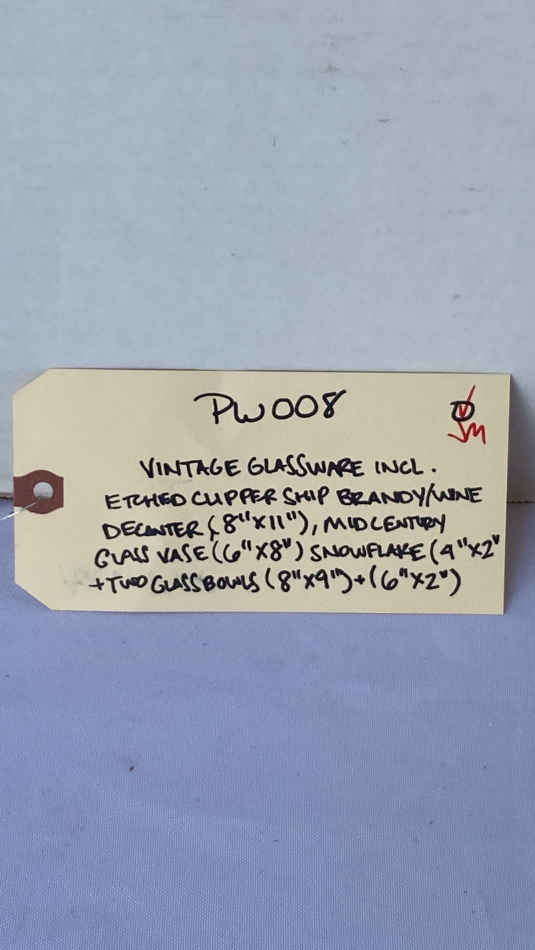 PW008
VINTAGE GLASSWARE INCL.
ETCHED CLIPPER SHIP BRANDY/WINE
DECANTER (8"X11"), MID CENTURY
GLASS VASE (6"X8") SNOWFLAKE (4"X2"
+ TWO GLASS BOWLS (8"X9") + (6"X2")